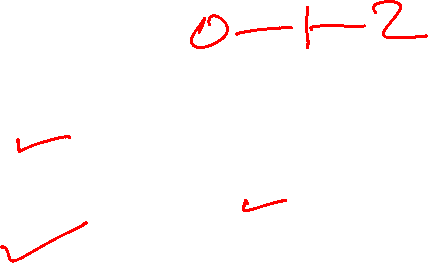 0-1-2
✓
✓
✓